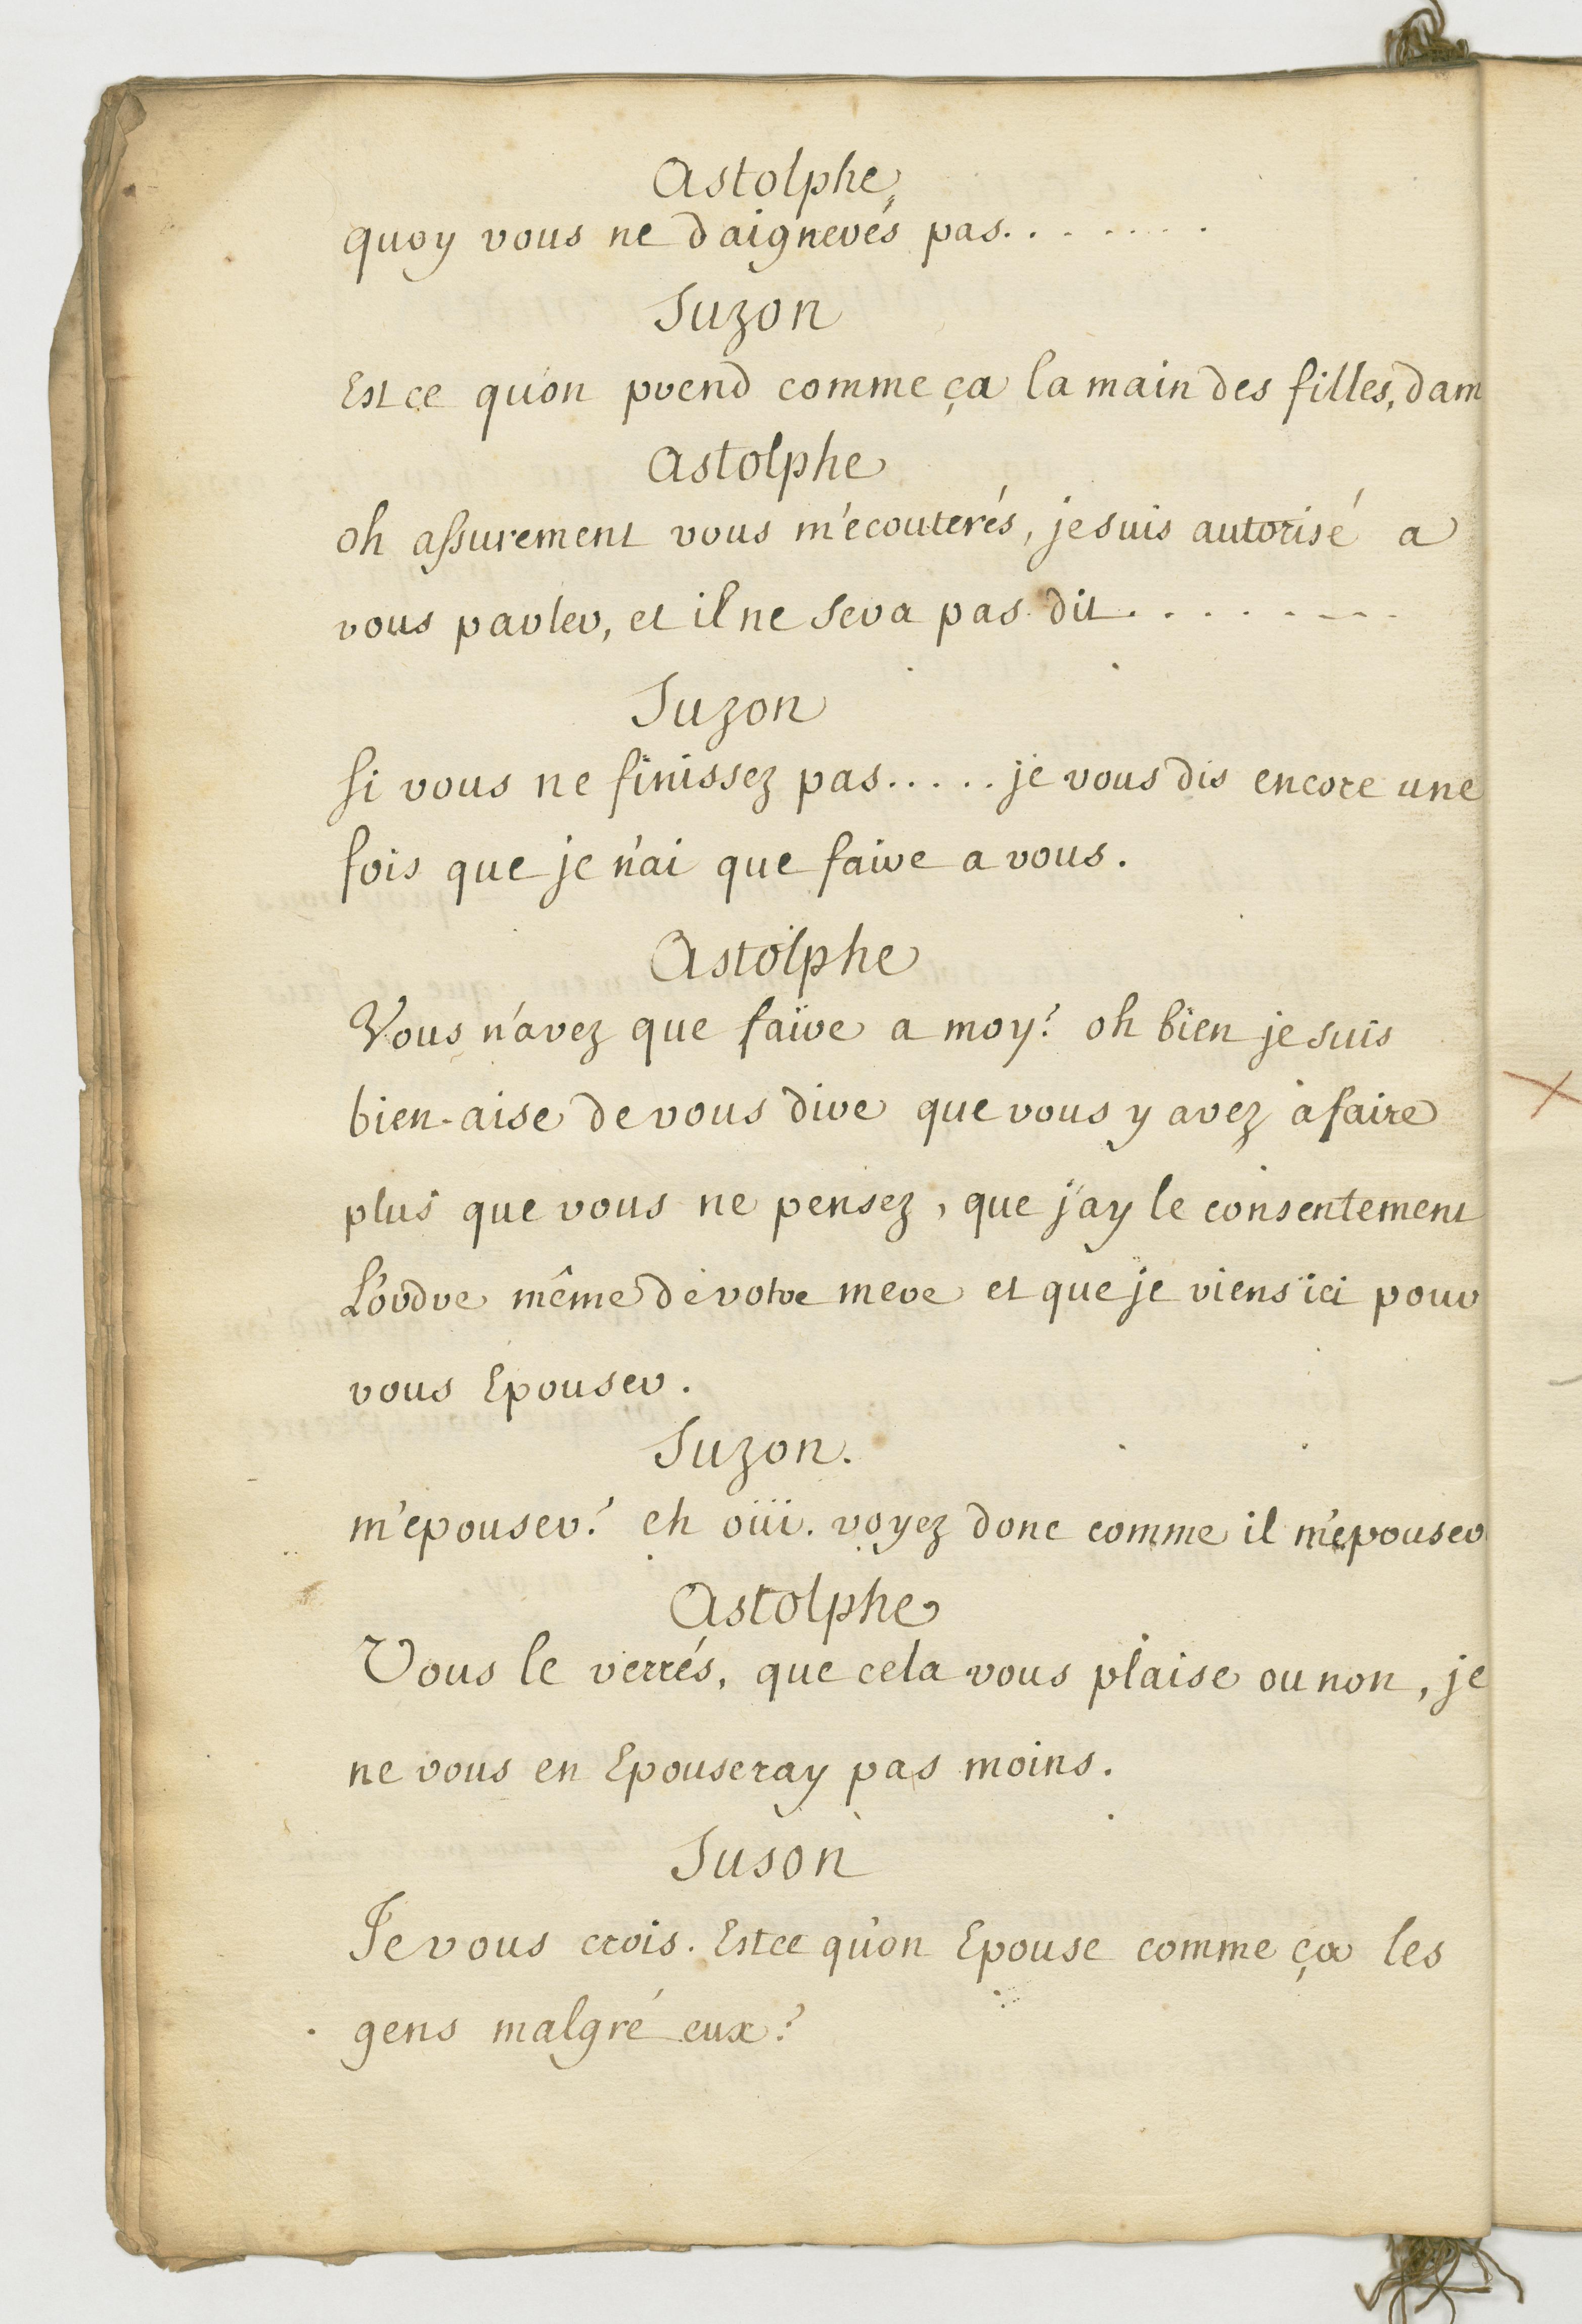 Astolphe
quoy vous ne daignerés pas........
Suzon
Est ce qu'on prend comme ça la main des filles, dam
Astolphe
oh assurement vous m'ecouterés, je suis autorisé a
vous parler, et il ne sera pas dit........
Suzon
si vous ne finissez pas..... je vous dis encore une
fois que je n'ai que faire a vous.
Astolphe
Vous n'avez que faire a moy? oh bien je suis
bien-aise de vous dire que vous y avez à faire
plus que vous ne pensez, que j'ay le consentement
L'ordre même de votre mere et que je viens ici pour
vous Epouser.
Suzon.
m'epouser? eh oüi. voyez donc comme il m'epouser
Astolphe
Vous le verrés, que cela vous plaise ou non, je
ne vous en Epouseray pas moins.
Suson
Je vous crois. Est ce qu'on Epouse comme ça les
gens malgré eux?